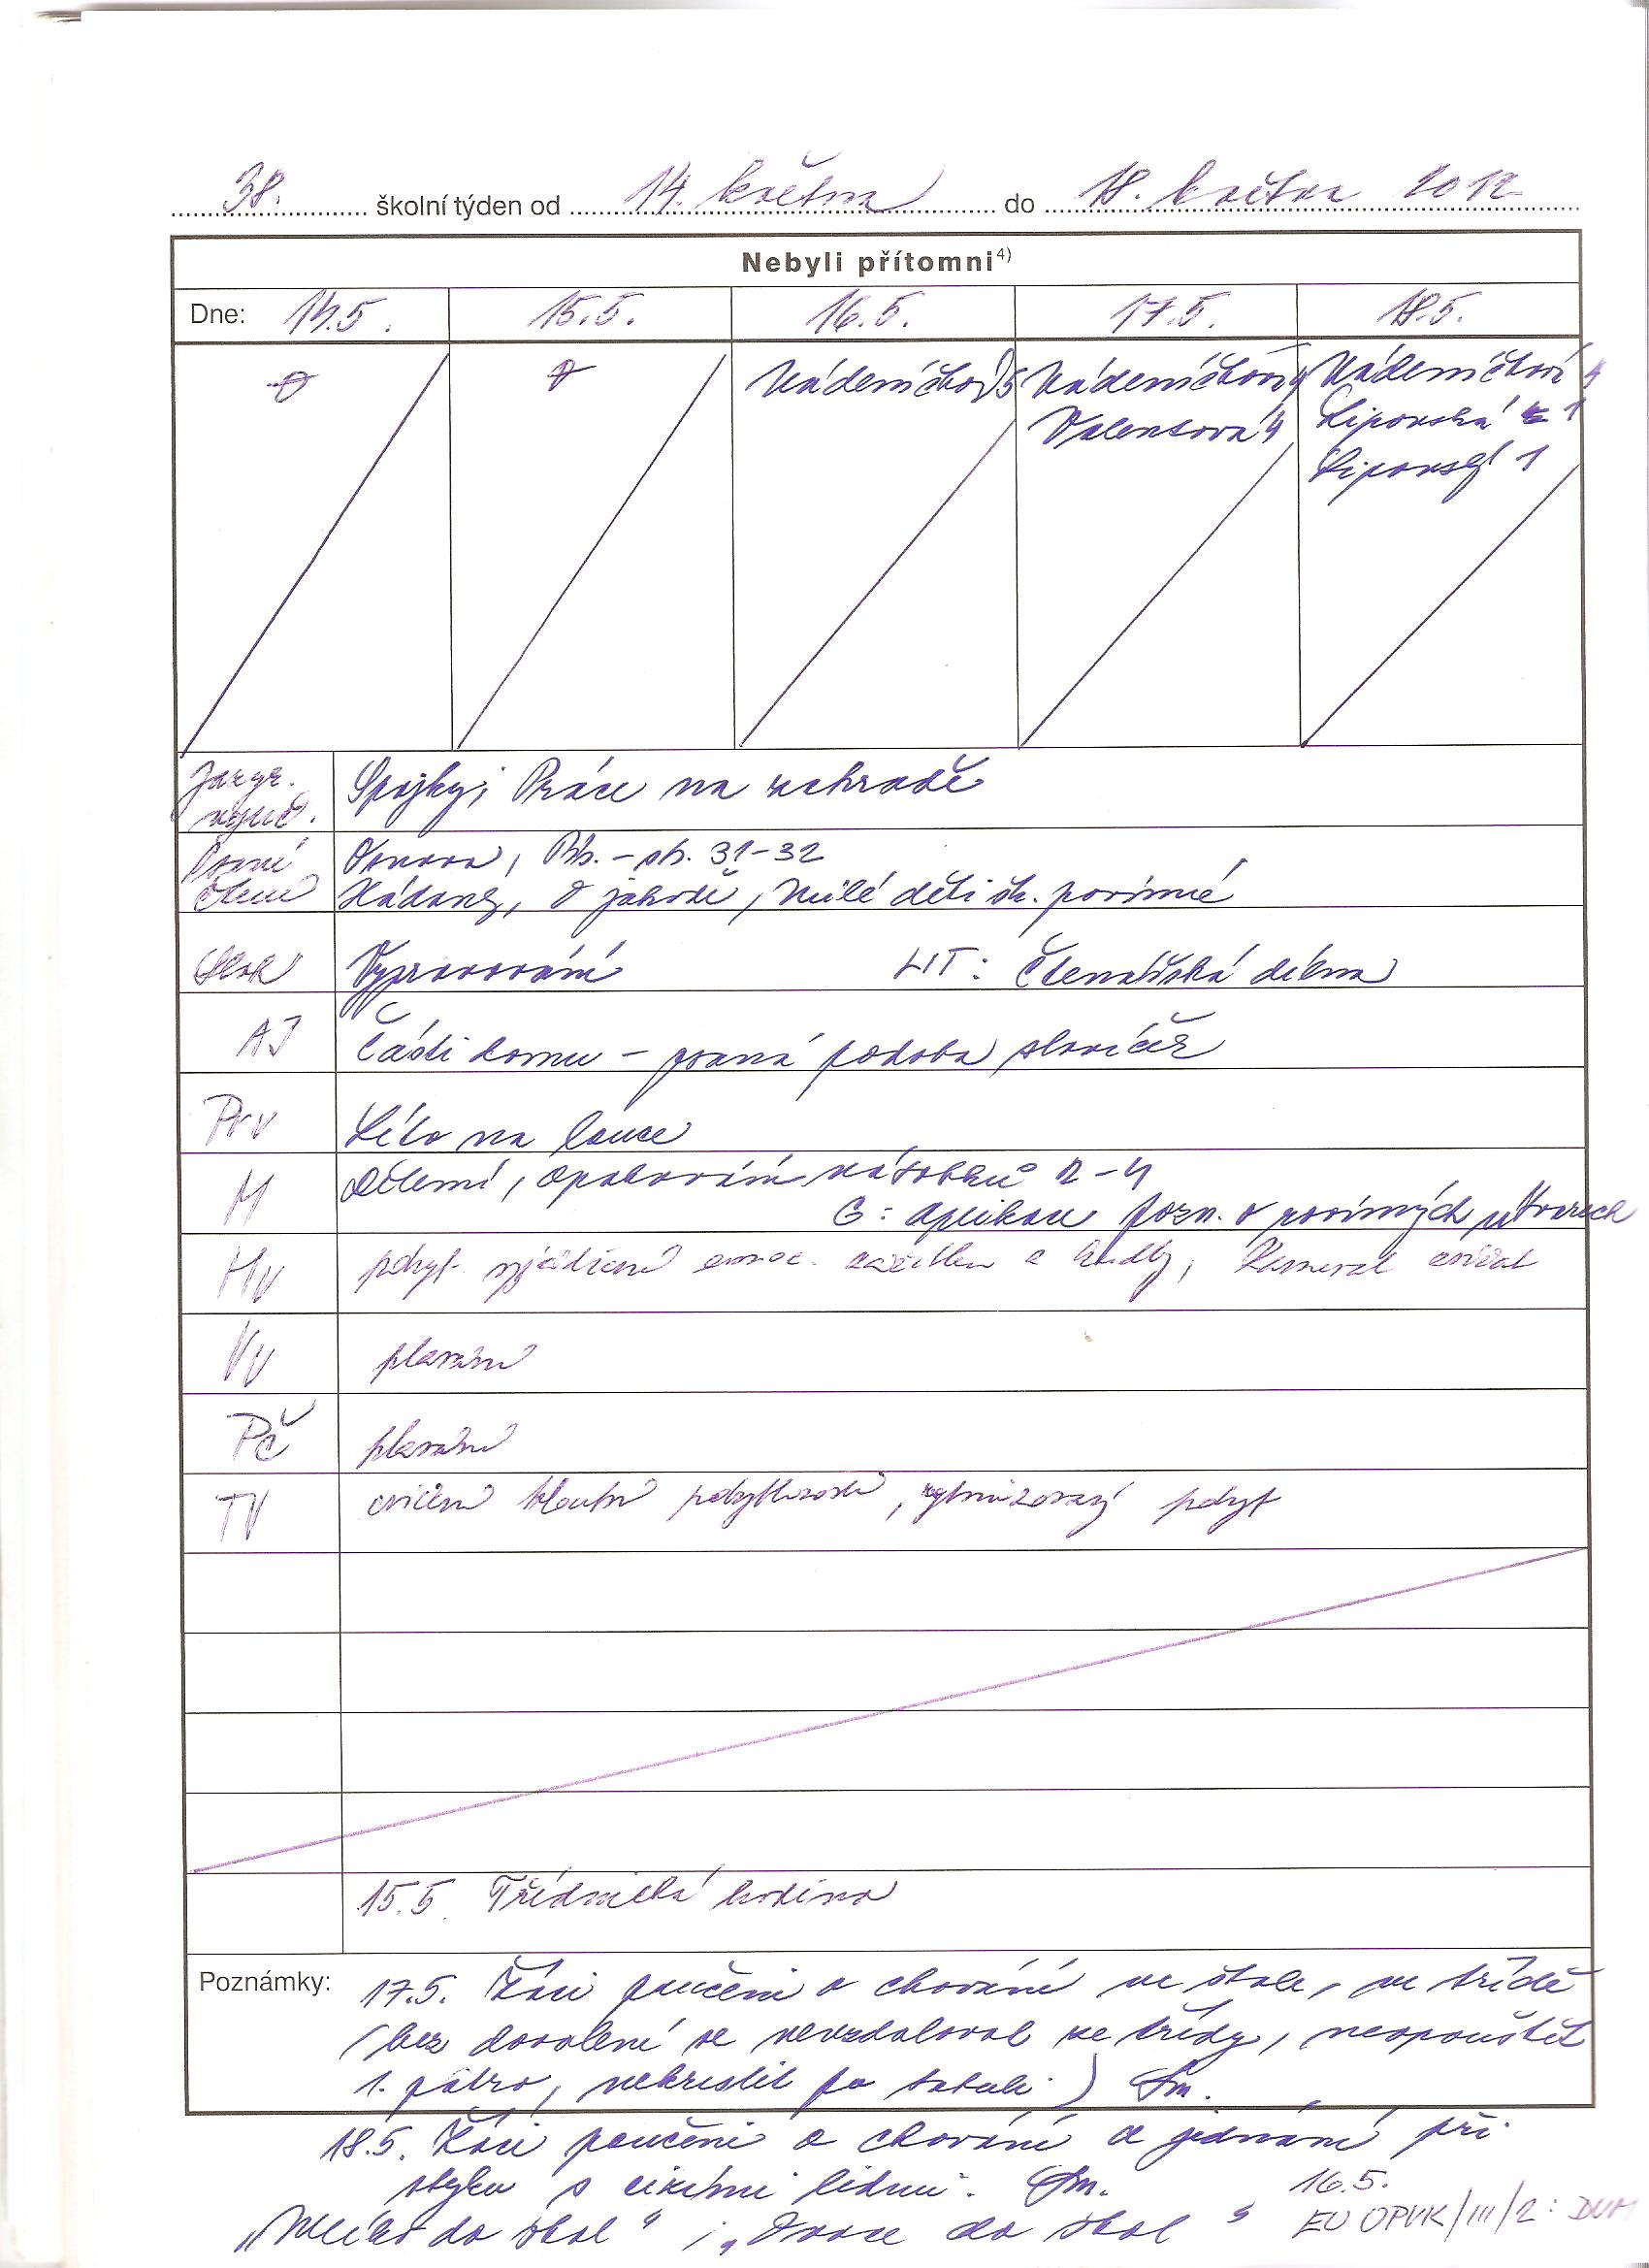 38. školní týden od 14. května do 18. května 2012
Nebyli přítomni4)
Dne: 14.5. 15.5. 16.5. 17.5. 18.5.
0 0 Nádeníčková 5 Nádeníčková 4 Nádeníčková 4
Valentová 4 Lipovská 1
Lipovský 1
Jazyk. Spojky; Práce na zahradě
vyuč.
Psaní Osnova, - str. 31-32
čtení Hádanky, O jahodě, Milé děti povinné
Sloh Vypravování LIT: Čtenářská dílna
AJ Části domu - psaná podoba slovíček
Prv Léto na louce
M Dělení, opakování násobků 2-4
G: aplikace pozn. o rovinných útvarech
Hv pohyb. vyjádření emoc. a hudby, Karneval zvířat
Vv plavání
Pč plavání
TV cvičení kloubní pohyblivosti, rytmizovaný pohyb
15.5. Třídnická hodina
Poznámky: 17.5. Žáci poučeni o chování ve škole, ve třídě
(bez dovolení se nevzdalovat ze třídy, neopouštět
1. patro, nekreslit po tabuli.) Sm.
18.5. Žáci poučeni o chování a jednání při
styku s cizími lidmi. Sm. 16.5.
"Mléko do škol" ; "Ovoce do škol" EU OPVK/III/2: DUM